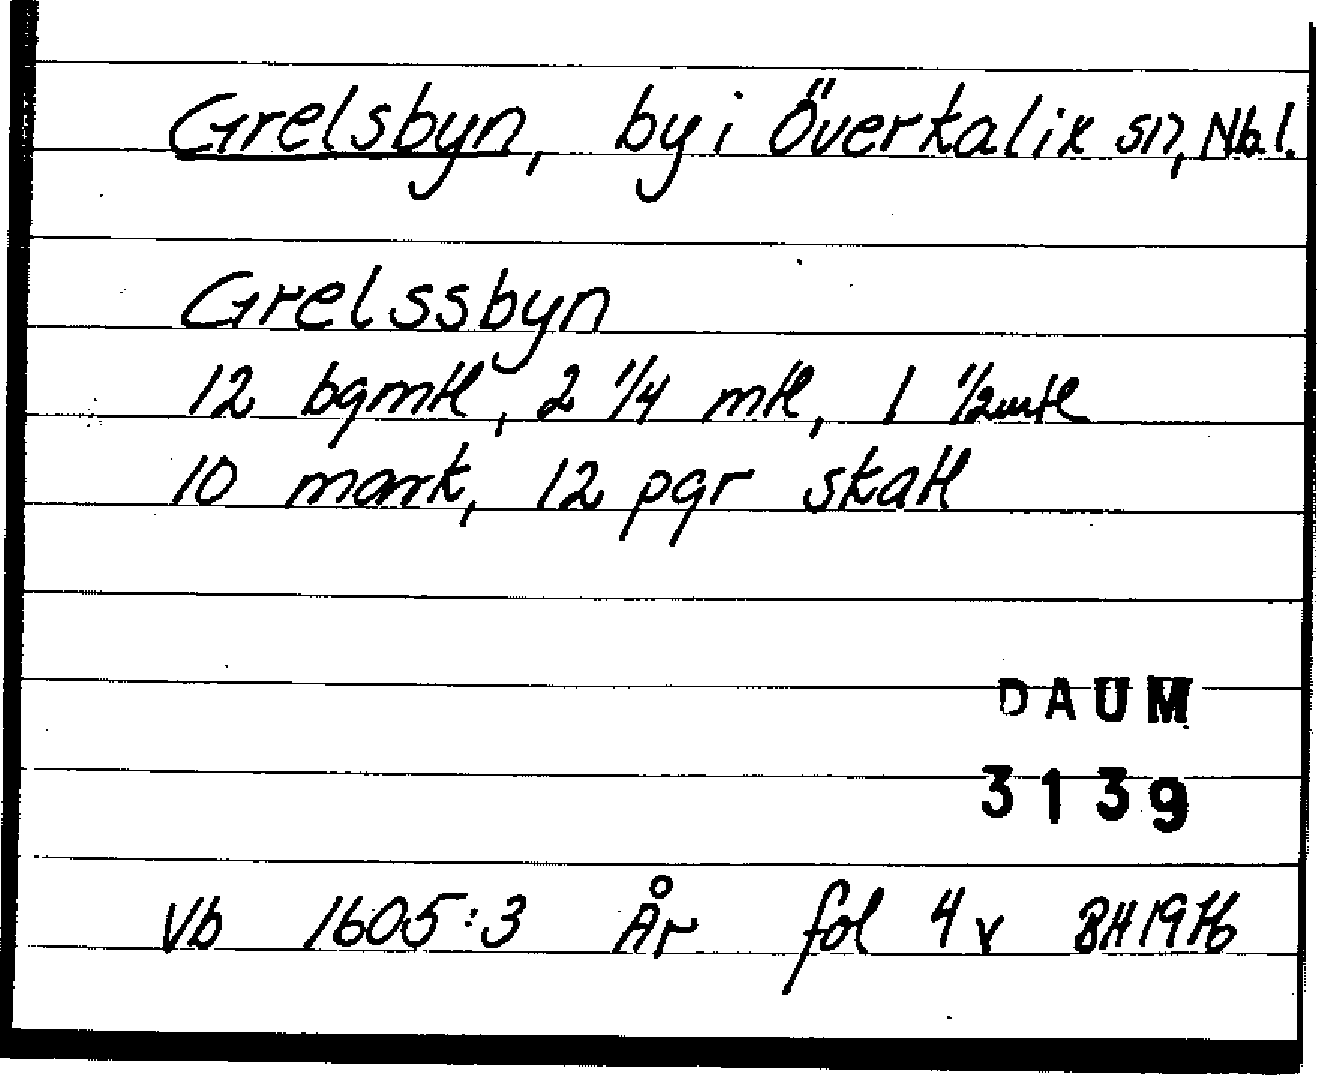 Grelsbyn, by i Överkalix sn, Nb.l.
Grelssbyn
12 bgmtl, 2 1/4 mtl, 1 1/2 mtl
10 mark, 12 pgr skatt
DAUM
3139
Vb 1605:3 År fol 4v BH 1976